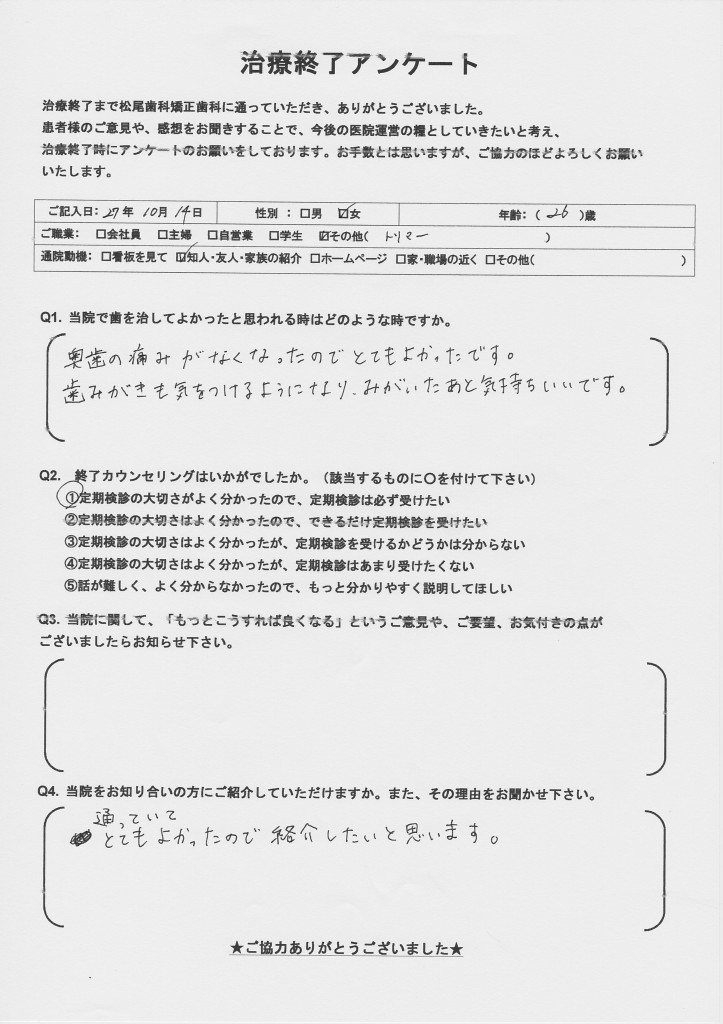 治療終了アンケート
治療終了まで松尾歯科矯正歯科に通っていただき、ありがとうございました。
患者様のご意見や、感想をお聞きすることで、今後の医院運営の糧としていきたいと考え、
治療終了時にアンケートのお願いをしております。お手数とは思いますが、ご協力のほどよろしくお願い
いたします。
ご記入日：27年 10月 14日 性別 ： □男 ☑女 年齢：（ 26 ）歳
ご職業： □会社員 □主婦 □自営業 □学生 ☑その他（ トリマー ）
通院動機：□看板を見て ☑知人・友人・家族の紹介 □ホームページ □家・職場の近く □その他（ ）
Q1. 当院で歯を治してよかったと思われる時はどのような時ですか。
奥歯の痛みがなくなったのでとてもよかったです。
歯みがきも気をつけるようになり、みがいたあと気持ちいいです。
Q2. 終了カウンセリングはいかがでしたか。（該当するものに〇を付けて下さい）
①定期検診の大切さがよく分かったので、定期検診は必ず受けたい
②定期検診の大切さはよく分かったので、できるだけ定期検診を受けたい
③定期検診の大切さはよく分かったが、定期検診を受けるかどうかは分からない
④定期検診の大切さはよく分かったが、定期検診はあまり受けたくない
⑤話が難しく、よく分からなかったので、もっと分かりやすく説明してほしい
Q3. 当院に関して、「もっとこうすれば良くなる」というご意見や、ご要望、お気付きの点が
ございましたらお知らせ下さい。
Q4. 当院をお知り合いの方にご紹介していただけますか。また、その理由をお聞かせ下さい。
通っていて
とてもよかったので紹介したいと思います。
★ご協力ありがとうございました★